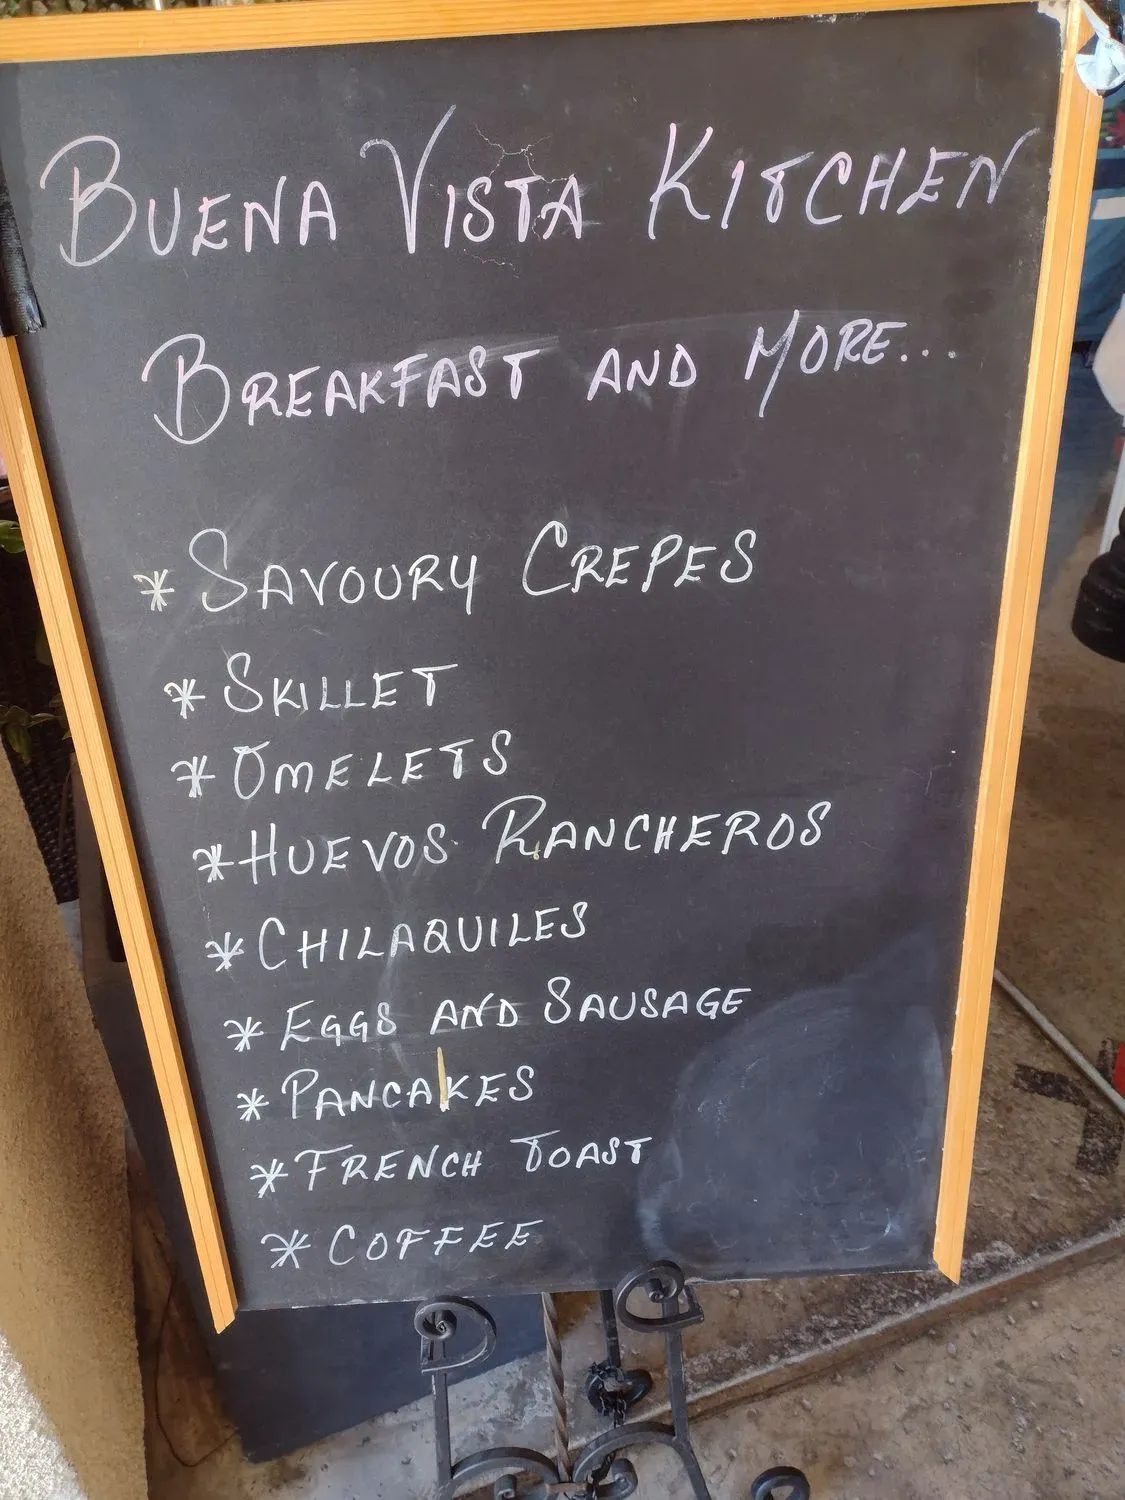 BUENA VISTA KITCHEN
BREAKFAST AND MORE...
* SAVOURY CREPES
* SKILLET
* OMELETS
* HUEVOS RANCHEROS
* CHILAQUILES
* EGGS AND SAUSAGE
* PANCAKES
* FRENCH TOAST
* COFFEE